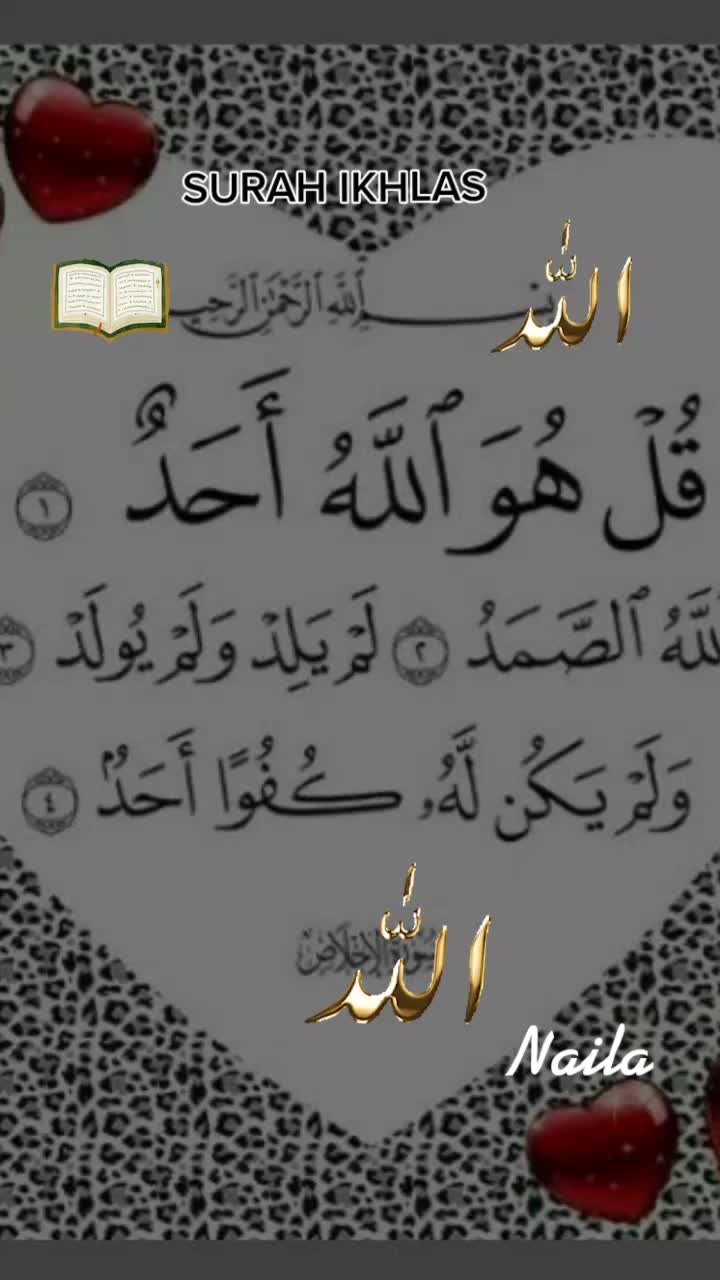 SURAH IKHLAS
بِسْمِ ٱللَّهِ ٱلرَّحْمَٰنِ ٱلرَّحِيمِ
ٱللَّٰه
قُلْ هُوَ ٱللَّهُ أَحَدٌ ١
ٱللَّهُ ٱلصَّمَدُ ٢ لَمْ يَلِدْ وَلَمْ يُولَدْ ٣
وَلَمْ يَكُن لَّهُۥ كُفُوًا أَحَدٌۢ ٤
سورة الإخلاص
ٱللَّٰه
Naila